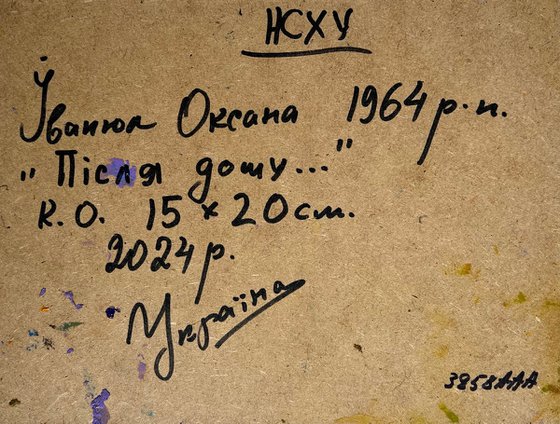 НСХУ
Іванюк Оксана 1964 р.н.
"Після дощу..."
к.о. 15 × 20 см.
2024 р.
Україна
3858ААА